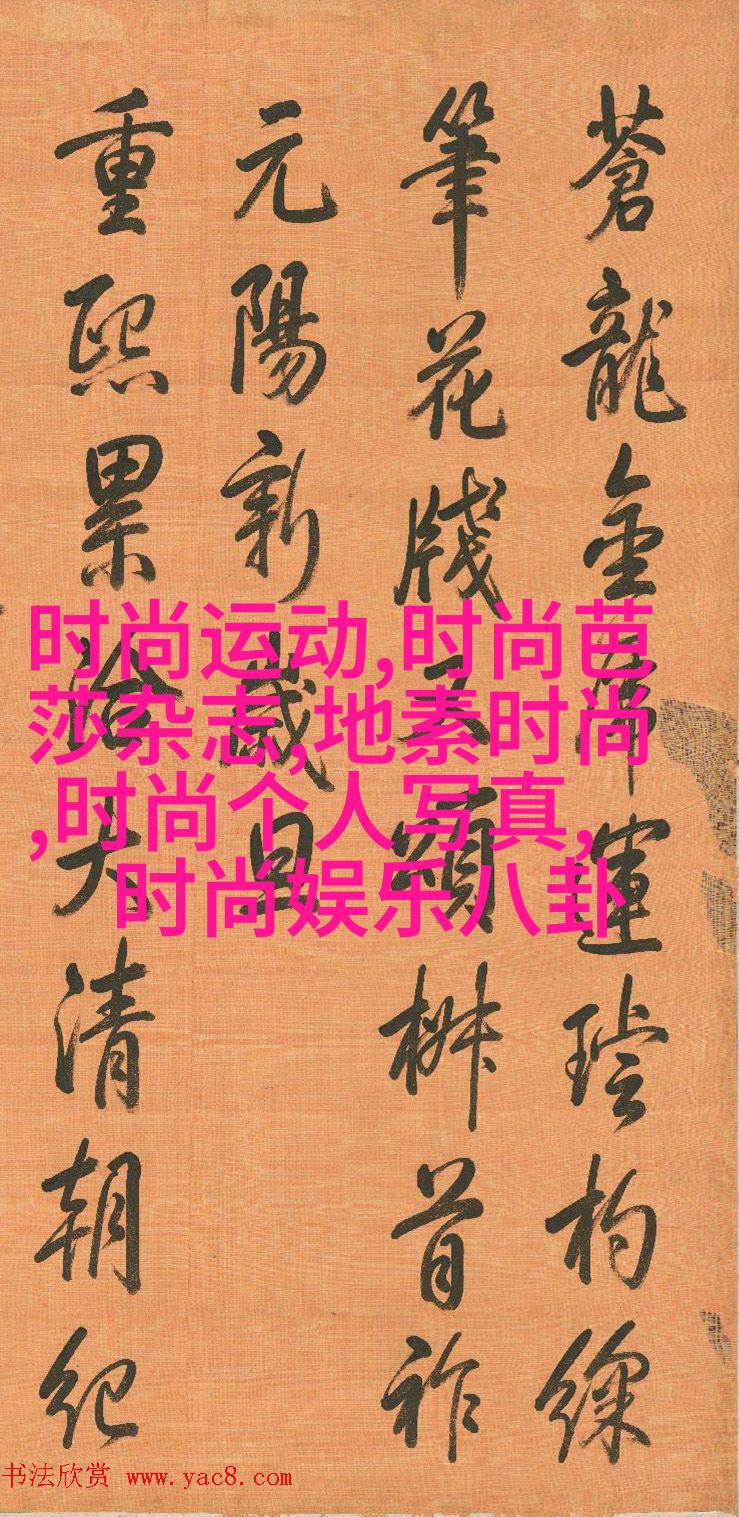 蒼龍金運杓
筆花牋頌椒首祚
元陽新歲旦
重熙累洽大清朝紀
时尚运动,时尚芭
莎杂志,地素时尚
,时尚个人写真,
时尚娱乐八卦
书法欣赏 www.yac8.com